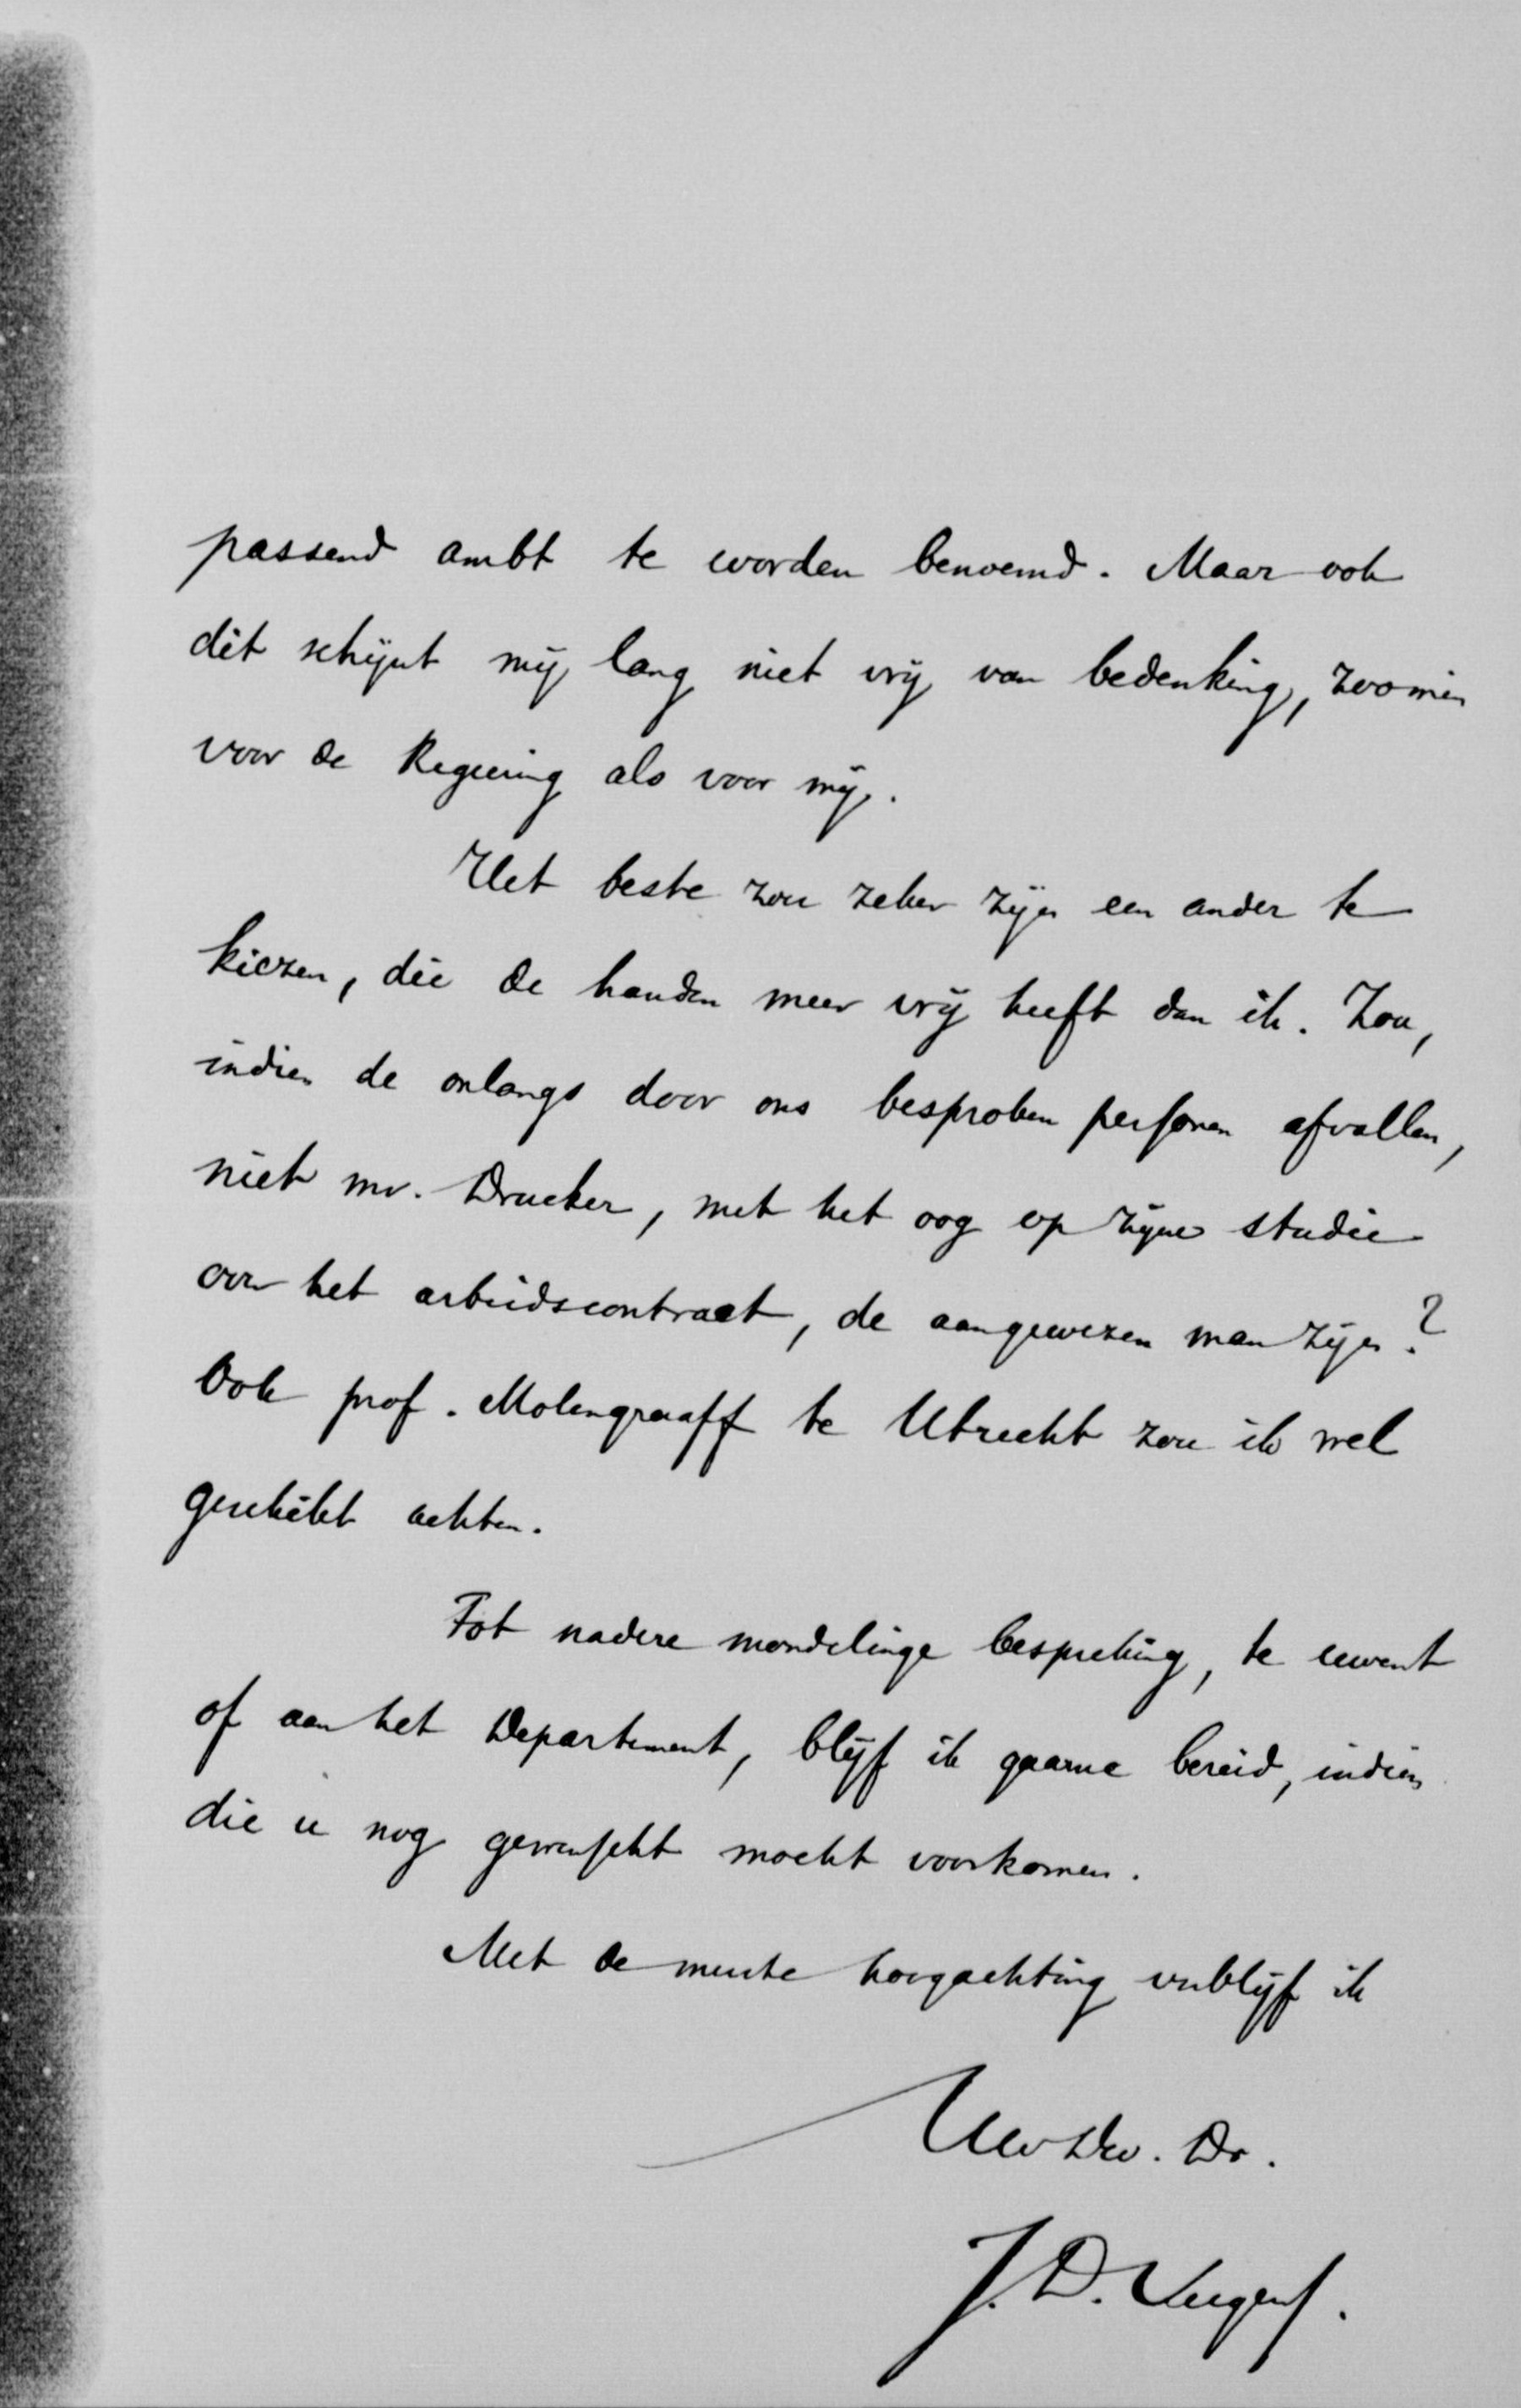 passend ambt te worden benoemd. Maar ook
dit schijnt mij lang niet vrij van bedenking, zoomin
voor de Regeering als voor mij.
Het beste zou zeker zijn een ander te
kiezen, die de handen meer vrij heeft dan ik. Zou,
indien de onlangs door ons besproken personen afvallen,
niet mr. Drucker, met het oog op zijne studie
over het arbeidscontract, de aangewezen man zijn?
Ook prof. Molengraaff te Utrecht zou ik wel
geschikt achten.
Tot nadere mondelinge bespreking, te uwent
of aan het Departement, blijf ik gaarne bereid, indien
die u nog gewenscht mocht voorkomen.
Met de meeste hoogachting verblijf ik
Uw Dw. Dr.
J. D. Veegens.